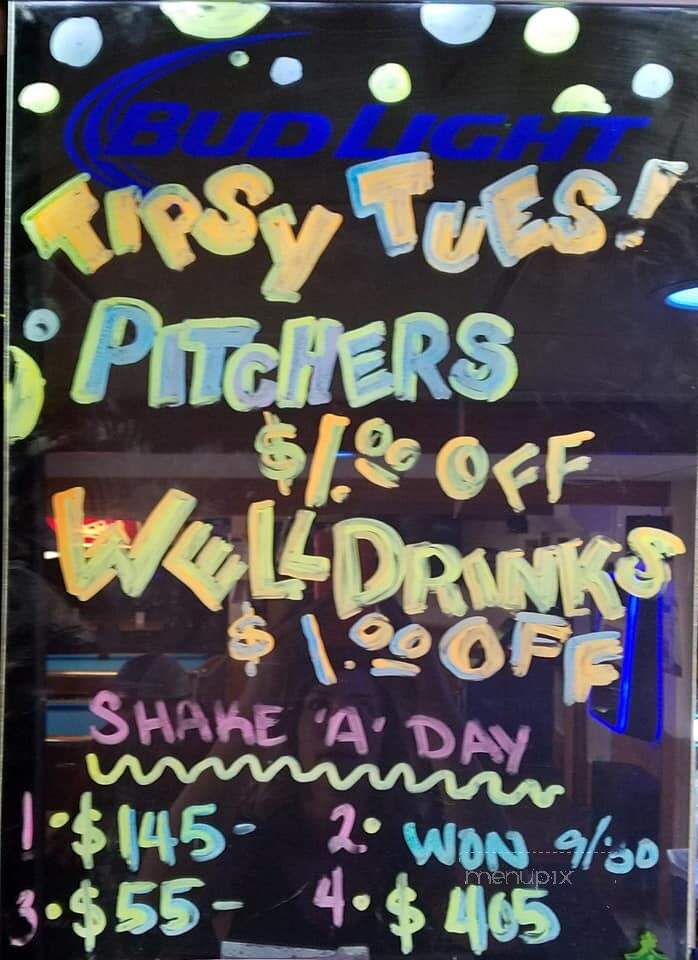 BUD LIGHT
TIPSY TUES!
PITCHERS
$1.00 OFF
WELL DRINKS
$1.00 OFF
SHAKE 'A' DAY
1• $145- 2• WON 9/30
menupix
3• $55- 4• $405